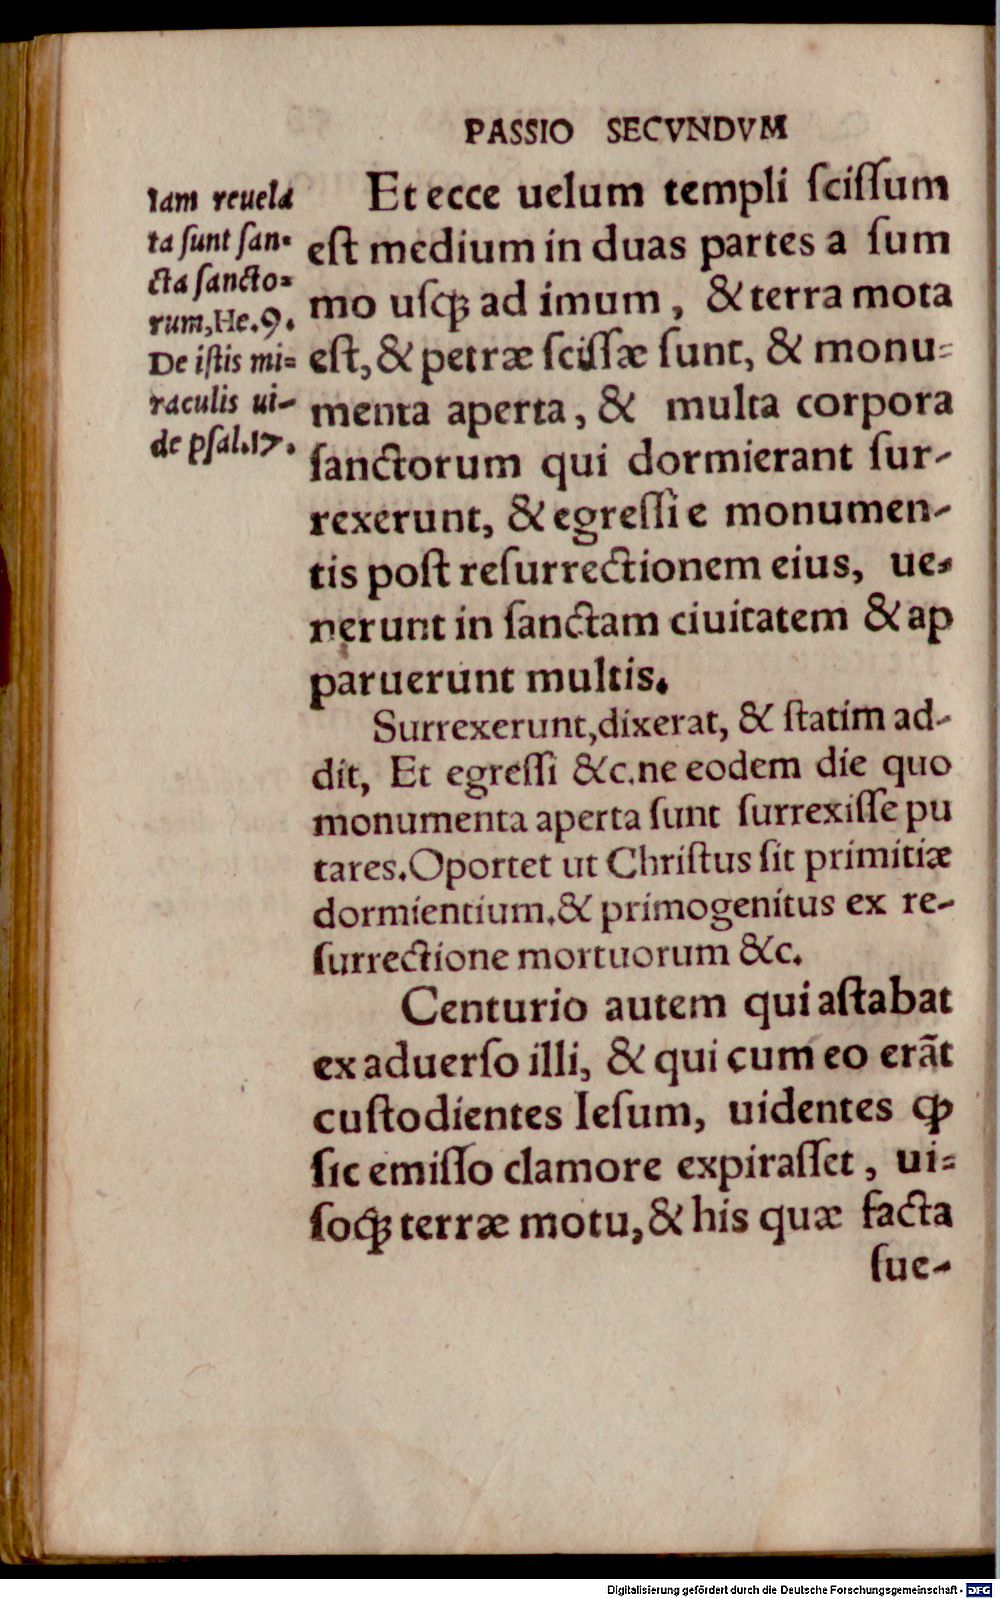 PASSIO SECVNDVM
Iam reuela
ta sunt san-
cta sancto-
rum, He.9.
De istis mi-
raculis ui-
de psal.17.
Et ecce uelum templi ſciſſum
eſt medium in duas partes a ſum
mo uſqꝫ ad imum, & terra mota
eſt, & petræ ſciſſæ ſunt, & monu-
menta aperta, & multa corpora
ſanctorum qui dormierant ſur-
rexerunt, & egreſſi e monumen-
tis poſt reſurrectionem eius, ue-
nerunt in ſanctam ciuitatem & ap
paruerunt multis.
Surrexerunt, dixerat, & ſtatim ad-
dit, Et egreſſi &c. ne eodem die quo
monumenta aperta ſunt ſurrexiſſe pu
tares. Oportet ut Chriſtus ſit primitiæ
dormientium, & primogenitus ex re-
ſurrectione mortuorum &c.
Centurio autem qui aſtabat
ex aduerſo illi, & qui cum eo erãt
cuſtodientes Ieſum, uidentes ꝙ
ſic emiſſo clamore expiraſſet, ui-
ſoqꝫ terræ motu, & his quæ facta
fue-
Digitalisierung gefördert durch die Deutsche Forschungsgemeinschaft - DFG